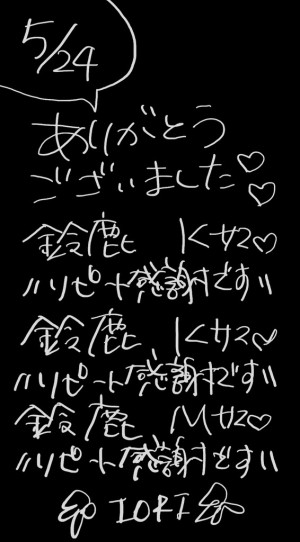 5/24
ありがとう
ございました♡♡
鈴鹿 Kサマ♡
〃リピート感謝です〃
鈴鹿 Kサマ♡
〃リピート感謝です〃
鈴鹿 Mサマ♡
〃リピート感謝です〃
IORI